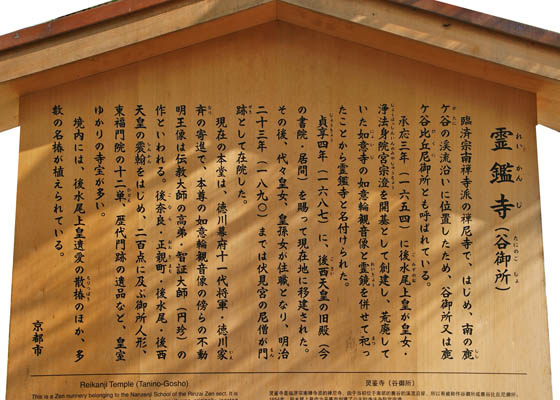 霊鑑寺（谷御所）
臨済宗南禅寺派の禅尼寺で、はじめ、南の鹿
ケ谷の渓流沿いに位置したため、谷御所又は鹿
ケ谷比丘尼御所とも呼ばれている。
承応三年（一六五四）に後水尾上皇が皇女・
浄法身院宮宗澄を開基として創建し、荒廃して
いた如意寺の如意輪観音像と霊鏡を併せて祀っ
たことから霊鑑寺と名付けられた。
貞享四年（一六八七）に、後西天皇の旧殿（今
の書院・居間）を賜って現在地に移建された。
その後、代々皇女、皇孫女が住職となり、明治
二十三年（一八九〇）までは伏見宮の尼僧が門
跡として在院した。
現在の本堂は、徳川幕府十一代将軍・徳川家
斉の寄進で、本尊の如意輪観音像の傍らの不動
明王像は伝教大師の高弟・智証大師（円珍）の
作といわれる。後奈良・正親町・後水尾、後西
天皇の宸翰をはじめ、二百点に及ぶ御所人形、
東福門院の十二単、歴代門跡の遺品など、皇室
ゆかりの寺宝が多い。
境内には、後水尾上皇遺愛の散椿のほか、多
数の名椿が植えられている。
京都市
Reikanji Temple (Tanino-Gosho)
This is a Zen nunnery belonging to the Nanzenji School of the Rinzai Zen sect. It is
灵鉴寺（谷御所）